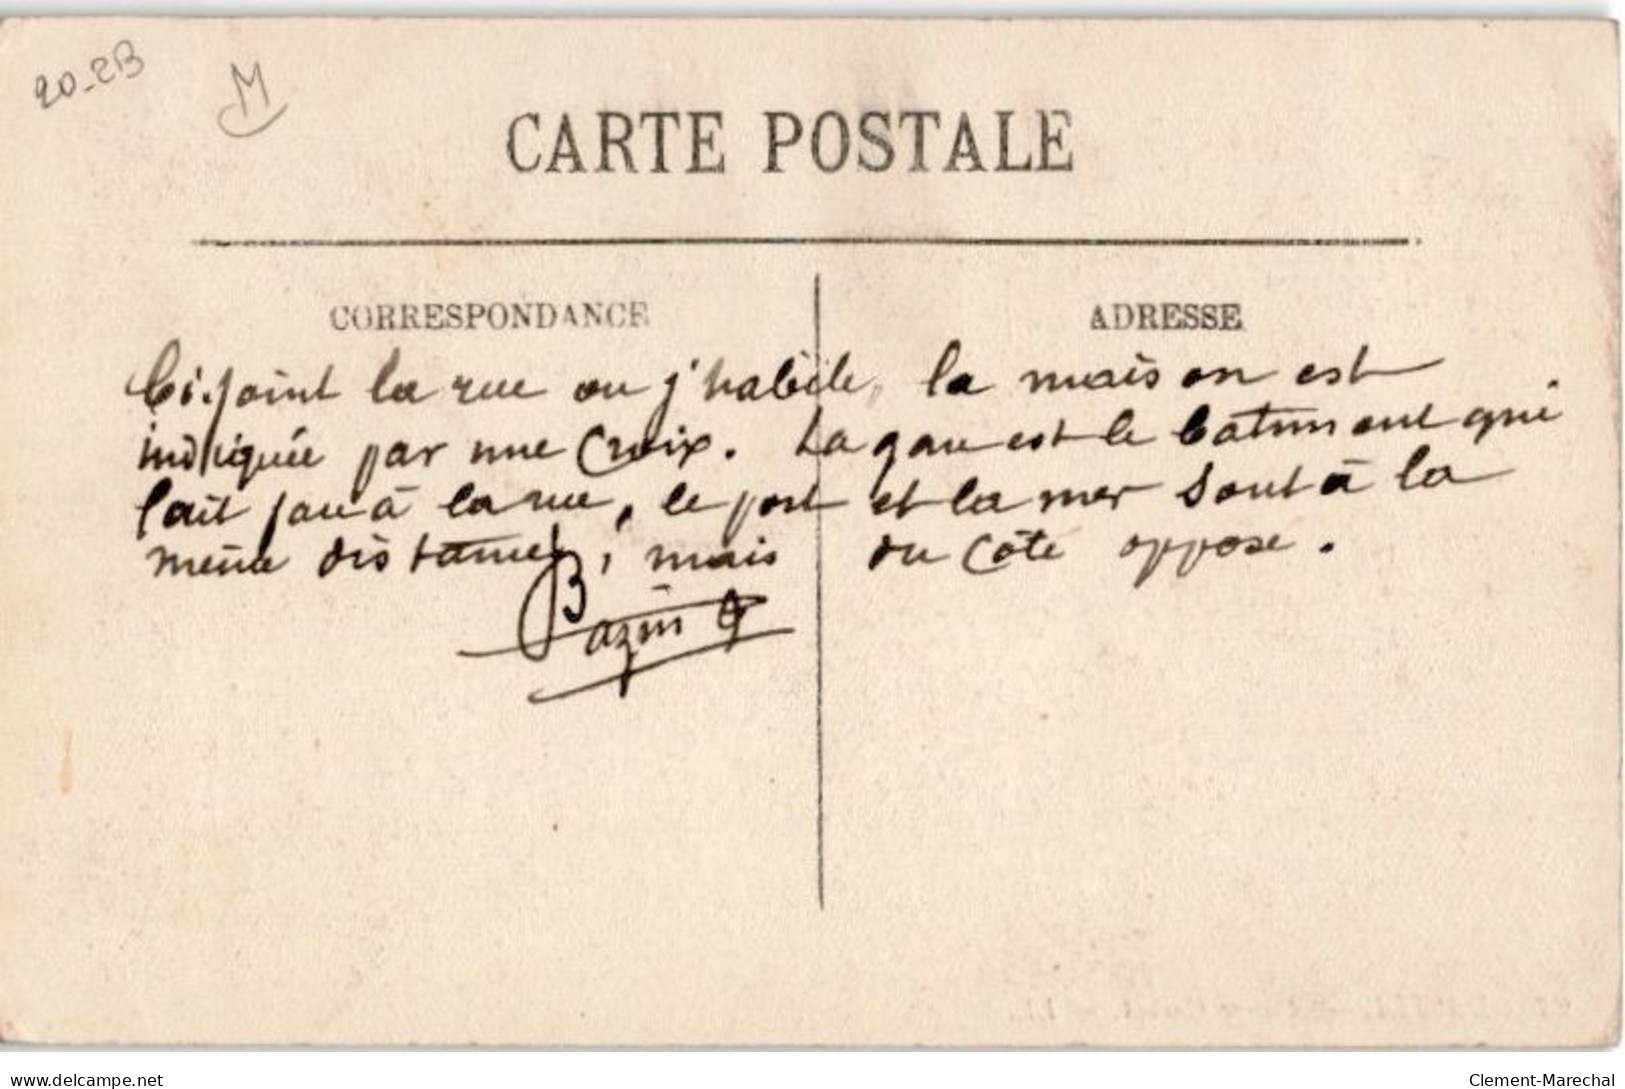 20-2B
M
CARTE POSTALE
CORRESPONDANCE
ADRESSE
Ci-joint la rue ou j'habite, la maison est
indiquée par une Croix. La gare est le batiment qui
fait face à la rue, le port et la mer sont à la
même distance, mais du côté opposé.
Bazin G
delcampe.net
Clement-Marechal